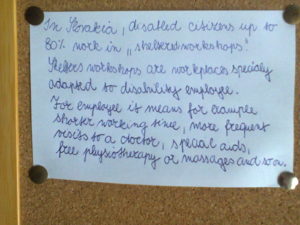 In Slovakia, disabled citizens up to
80% work in „sheltered workshops".
Shelters workshops are workplaces specialy
adapted to disability employee.
For employee it means for example
shorter working time, more frequent
visits to a doctor, special aids,
free physiotherapy or massages and so on.